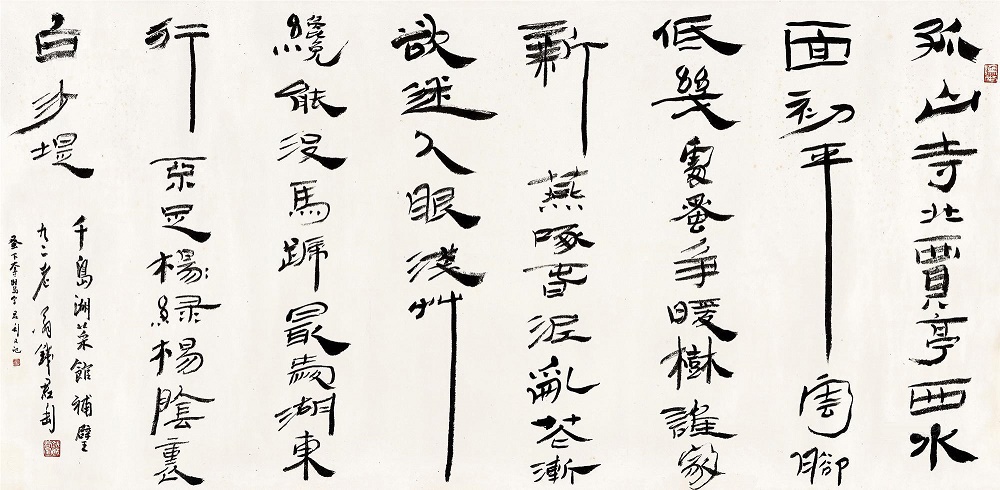 孤山寺北賈亭西水
面初平雲腳
低幾處蚤爭暖樹誰家
新燕啄春泥亂花漸
欲迷人眼淺艸
纔能沒馬蹄最愛湖東
行不足楊綠楊陰裏
白沙堤
千島湖菜館補壁
九二老翁錢君匋
蚤下奪鶯字君匋又記